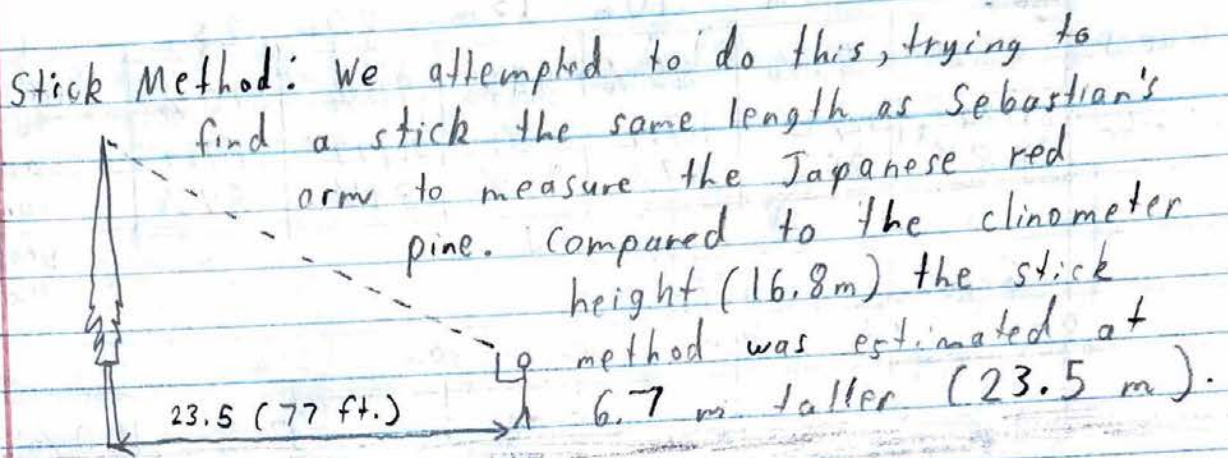 Stick Method: We attempted to do this, trying to
find a stick the same length as Sebastian's
arm to measure the Japanese red
pine. Compared to the clinometer
height (16.8m) the stick
method was estimated at
6.7 m taller (23.5 m).
23.5 (77 ft.)